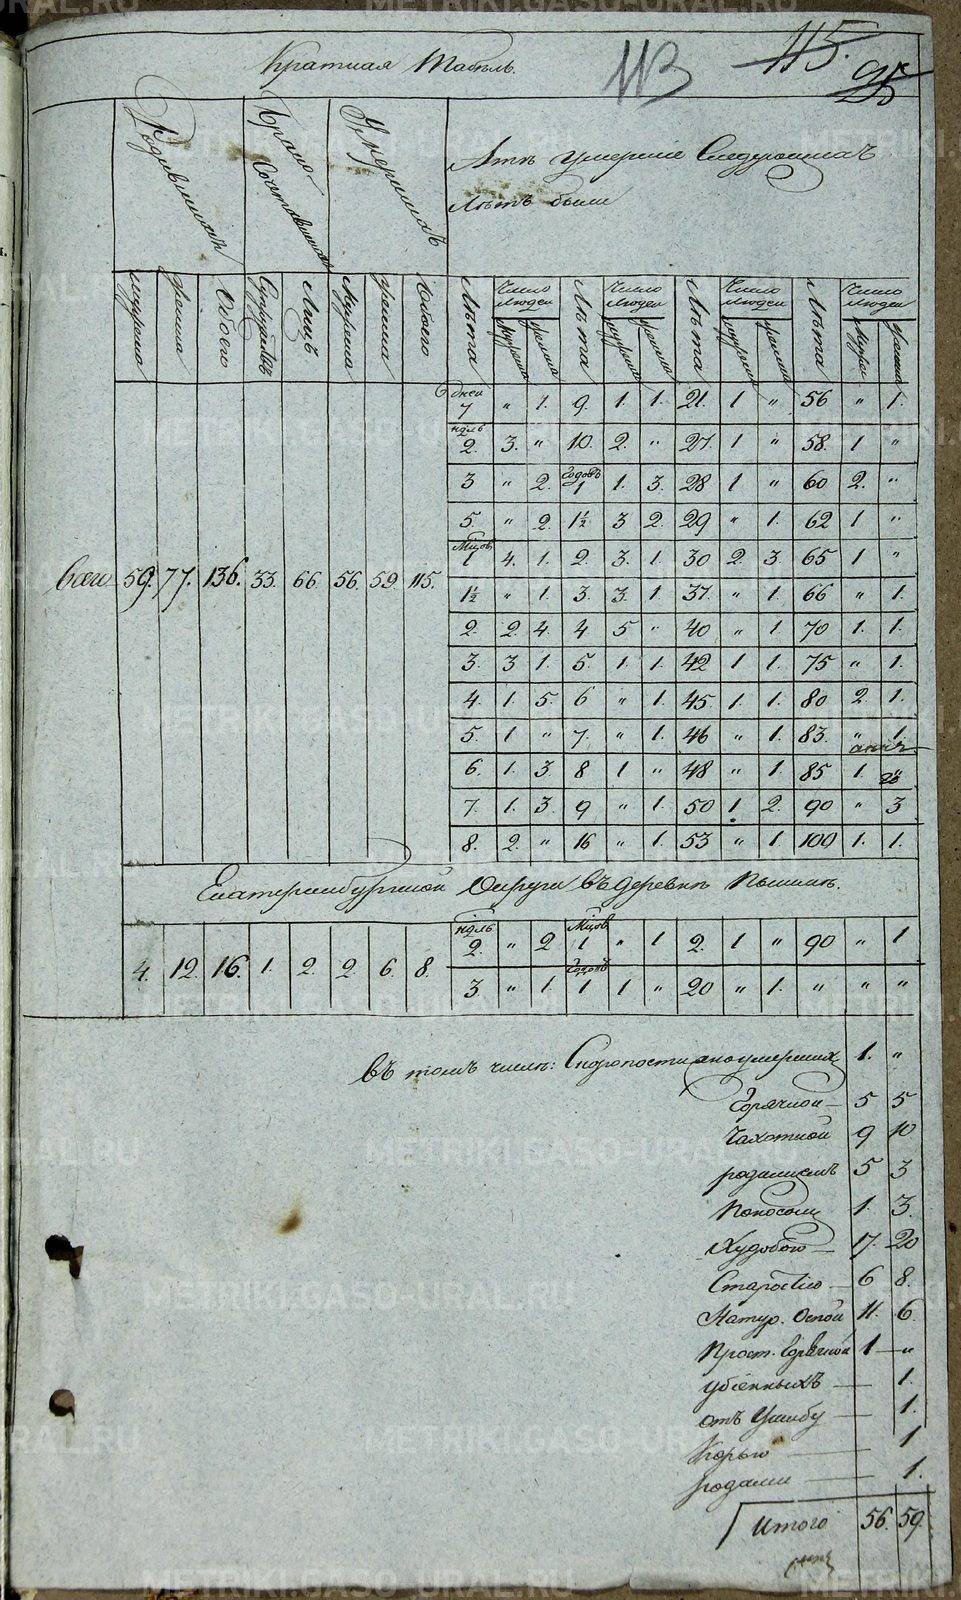 Краткая Табель.
113
115.
95
Родившихся
Брако-
сочтавшихся
Умерших
Лѣтъ умершіе Следующихъ
Лѣтъ были
мужеска
женска
Обоего
Супружествъ
Лицъ
Мужеска
женска
Обоего
Лѣта
Число людей
мужеска
женска
Лѣта
Число людей
мужеска
женска
Лѣта
Число людей
мужеска
женска
Лѣта
Число людей
Мужес
женска
дней 7 " 1. 9. 1. 1. 21. 1 " 56 " 1.
ндль 2. 3. " 10. 2. " 27. 1 " 58. 1 "
3 " 2. Годовъ 1 1. 3. 28 1 " 60 2. "
5. " 2. 1½ 3 2. 29 " 1. 62 1 "
Мцов 1 4. 1. 2. 3. 1. 30 2. 3. 65 1 "
Всего 59. 77. 136. 33. 66. 56. 59. 115.
1½ " 1. 3. 3. 1. 37. " 1. 66 " 1.
2. 2. 4. 4 5 " 40 " 1. 70 1. 1.
3. 3 1. 5. 1. 1. 42 1 1. 75 " 1.
4. 1. 5. 6 " 1. 45. 1. 1. 80 2. 1.
5. 1 " 7. " 1. 46 " 1. 83. " 1
6. 1. 3. 8 1 " 48 " 1. 85 1.
7. 1. 3. 9 " 1. 50 1. 2. 90 " 3
8. 2. " 16 " 1. 53 " 1. 100 1. 1.
Екатеринбургской Округи въ деревнѣ Пышмѣ.
4. 12. 16. 1. 2. 2. 6. 8.
ндль 2. " 2 Мцов 1 " 1 2. 1 " 90 " 1
3. " 1. Годовъ 1 1 " 20 " 1. " " "
въ томъ числѣ: Скоропостижноумерших 1. "
Горячкой 5 5
Чахоткой 9 10
родимцемъ 5 3
Поносомъ 1. 3.
Худобою 17. 20
Старостію 6 8.
Натур. Оспой 11. 6.
Прост. Горячкой 1 "
убіенныхъ 1.
отъ Ушибу 1.
Корью 1
родами 1.
Итого 56. 59.
METRIKI.GASO-URAL.RU